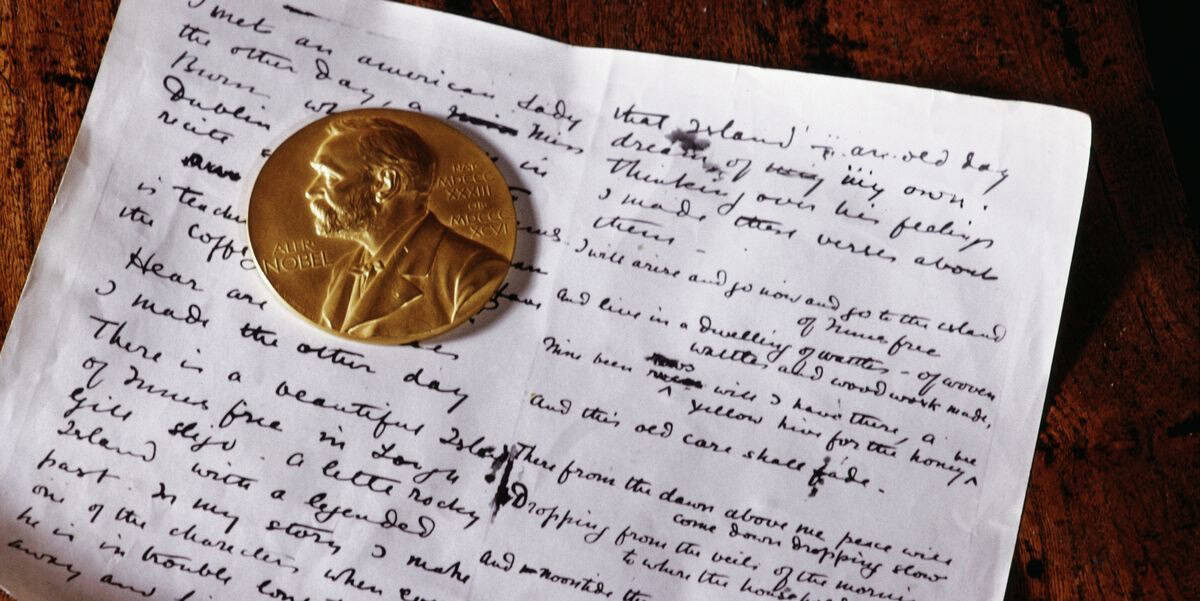 I met an american Lady
the other day, a Miss
Burn
Dublin in
recite
is teach
the coffe
Hear are
I made the other day
There is a beautiful Isla
of Innis free in Lough
Gill Sligo. A little rocky
Island with a legended
past. In my story I make
one of the charecters when
he is in trouble long
away and
ALFR.
NOBEL
NAT.
MDCCC
XXXIII
OB.
MDCCC
XCVI
that Island' – an old day
dream of my own.
Thinking over his feelings
I made these verses about
them –
I will arise and go now and go to the island
of Innis free
and live in a dwelling of wattles – of woven
wattles and wood work made,
Nine bean rows will I have there, a
yellow hive for the honey bee
And this old care shall fade.
There from the dawn above me peace will
come down dropping slow
Dropping from the veils of the morning
to where the household
and noontide